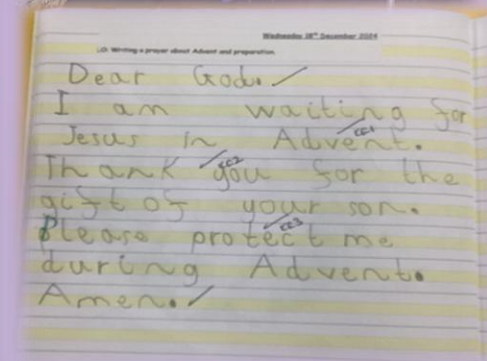 Wednesday 18th December 2024
LO: Writing a prayer about Advent and preparation.
Dear God.
I am waiting for
Jesus in Advent.
CC1
Thank you for the
CC2
gift of your son.
Please protect me
CC3
during Advent.
Amen.